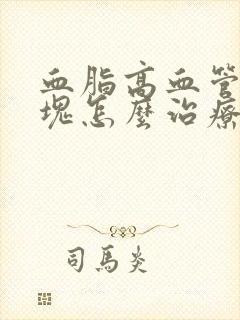 血脂高血管
塊怎麼治療
司馬炎